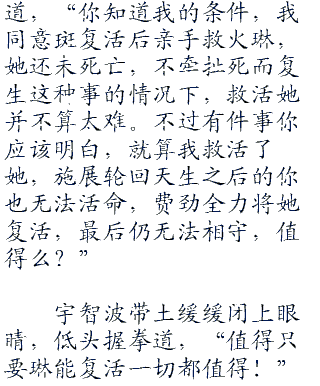 道，“你知道我的条件，我
同意斑复活后亲手救火琳，
她还未死亡，不牵扯死而复
生这种事的情况下，救活她
并不算太难。不过有件事你
应该明白，就算我救活了
她，施展轮回天生之后的你
也无法活命，费劲全力将她
复活，最后仍无法相守，值
得么？”
宇智波带土缓缓闭上眼
睛，低头握拳道，“值得只
要琳能复活一切都值得！”